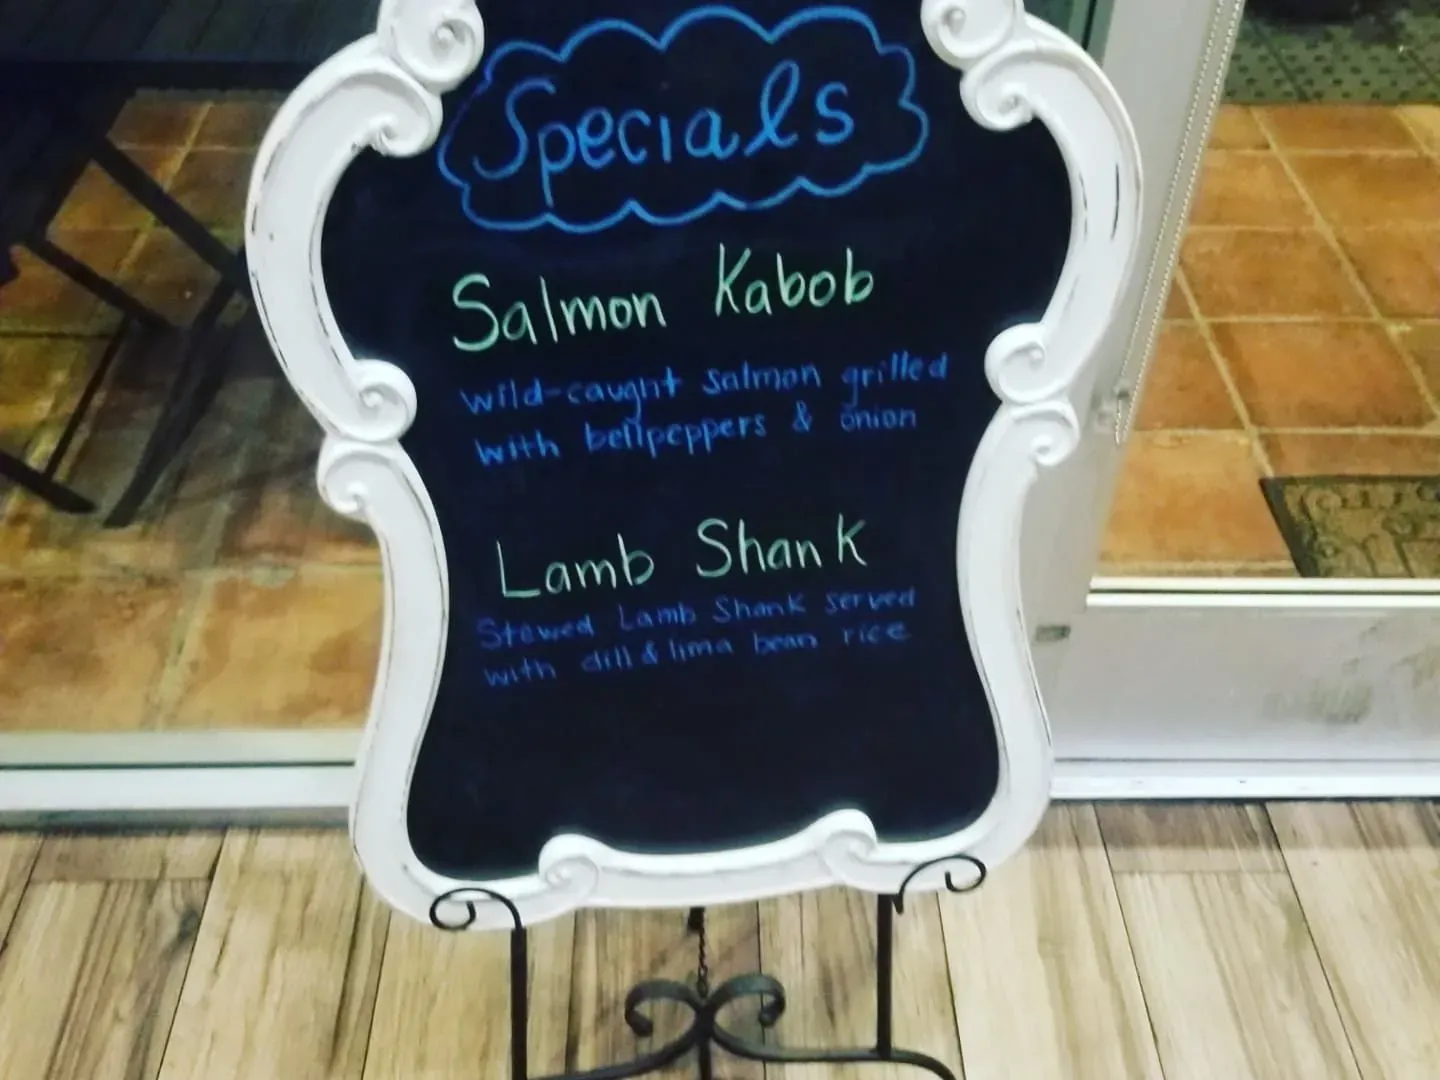 Specials
Salmon Kabob
wild-caught salmon grilled
with bellpeppers & onion
Lamb Shank
Stewed Lamb Shank served
with dill & lima bean rice